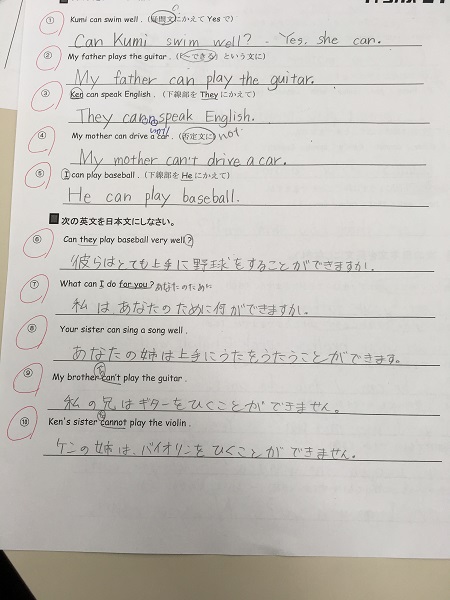 ① Kumi can swim well .（疑問文にかえて Yes で）
Can Kumi swim well? - Yes, she can.
② My father plays the guitar.（「～できる」という文に）
My father can play the guitar.
③ Ken can speak English .（下線部を They にかえて）
They can speak English.
④ My mother can drive a car .（否定文に）not
My mother can't drive a car.
⑤ I can play baseball .（下線部を He にかえて）
He can play baseball.
■ 次の英文を日本文にしなさい。
⑥ Can they play baseball very well ?
彼らはとても上手に野球をすることができますか。
⑦ What can I do for you ? あなたのために
私は あなたのために何ができますか。
⑧ Your sister can sing a song well .
あなたの姉は上手にうたをうたうことができます。
⑨ My brother can't play the guitar .
私の兄はギターをひくことができません。
⑩ Ken's sister cannot play the violin .
ケンの姉は、バイオリンをひくことができません。